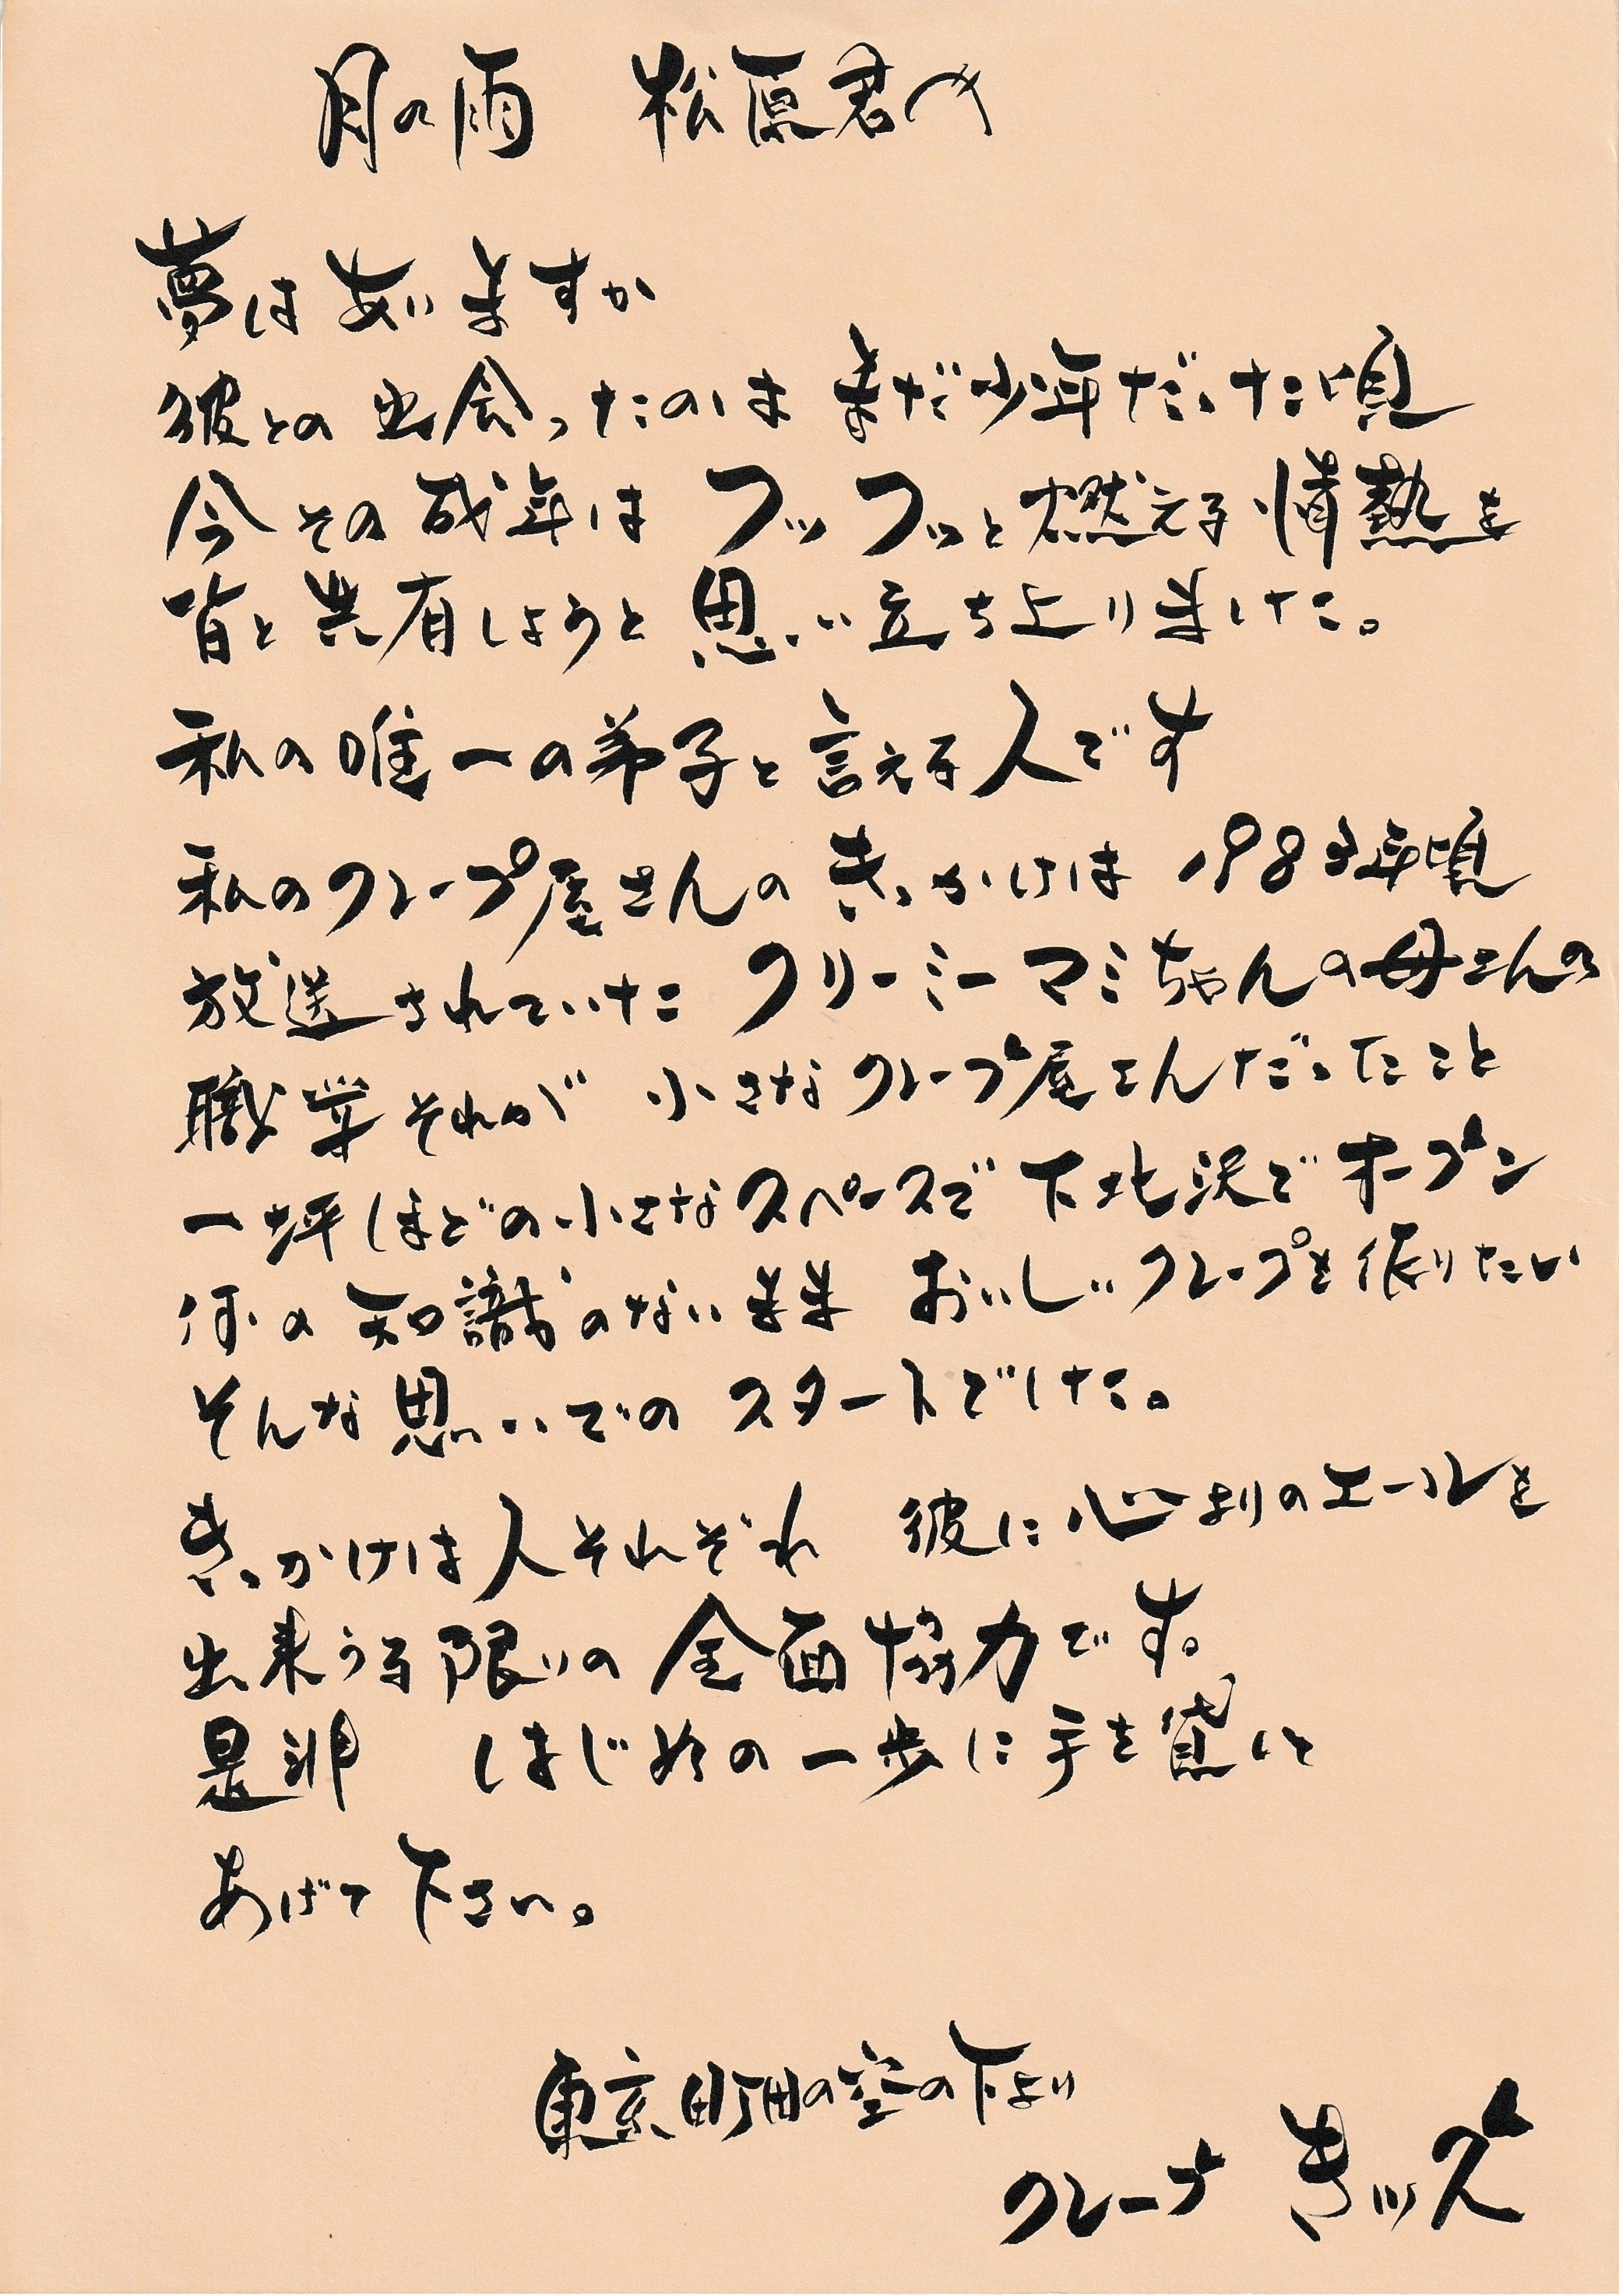 月の雨 松原君へ
夢はありますか
彼との出会ったのは まだ少年だった頃
今その成年は フッフッと燃える情熱を
皆と共有しようと思い立ち上りました。
私の唯一の弟子と言える人です
私のクレープ屋さんの きっかけは 1983年頃
放送されていた クリーミーマミちゃんの母さんの
職業それが 小さなクレープ屋さんだったこと
一坪ほどの小さなスペースで 下北沢でオープン
何の知識のないまま おいしいクレープを作りたい
そんな思いでのスタートでした。
きっかけは人それぞれ 彼に心よりのエールを
出来うる限りの全面協力です。
是非 はじめの一歩に手を貸して
あげて下さい。
東京町田の空の下より
クレープ きッズ